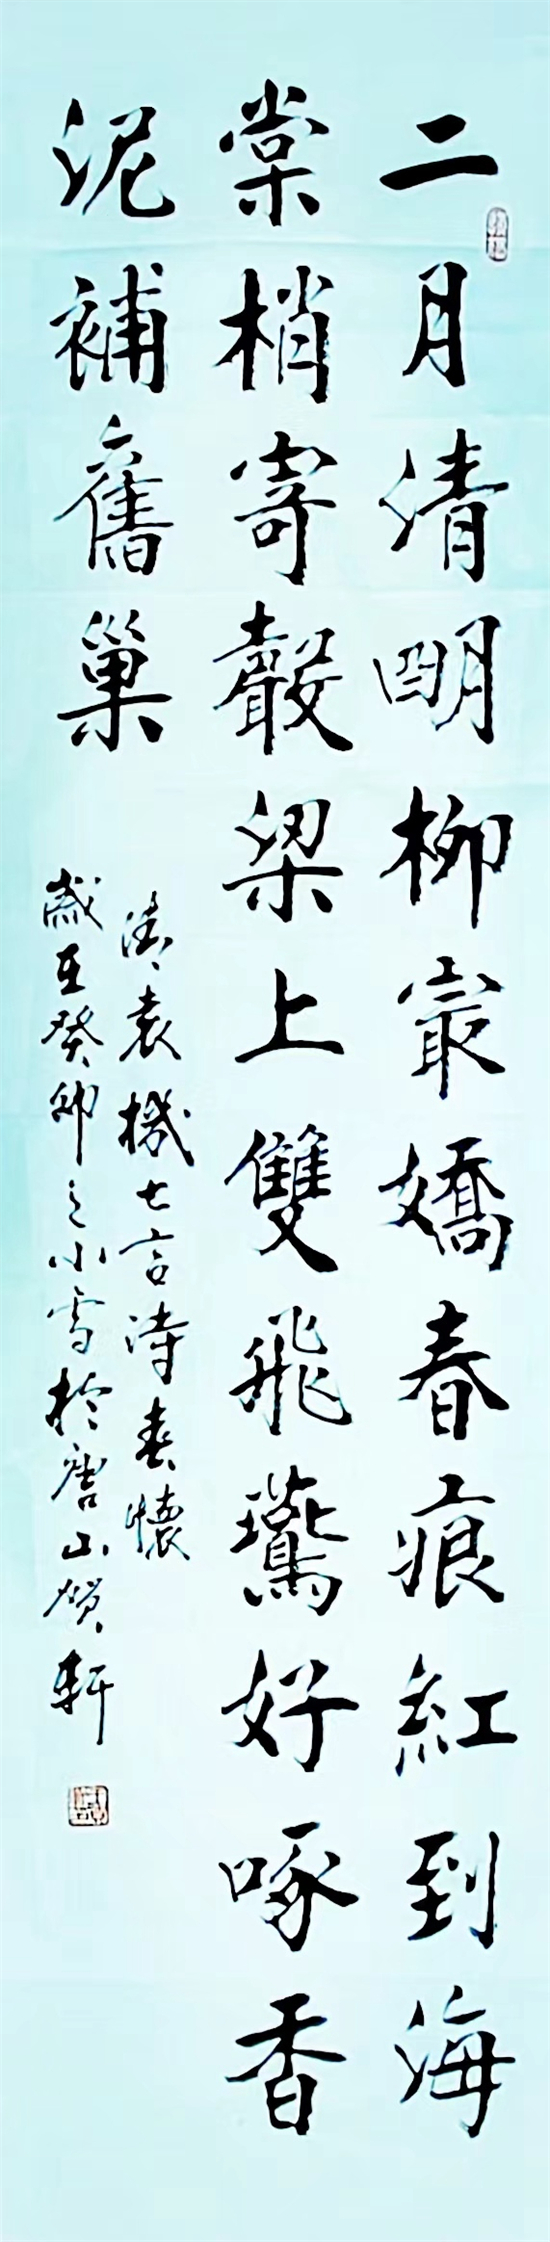 二月清明柳最嬌春痕紅到海
棠梢寄聲梁上雙飛燕好啄香
泥補舊巢
清袁機七言詩春懷
歲在癸卯之小雪於唐山軒